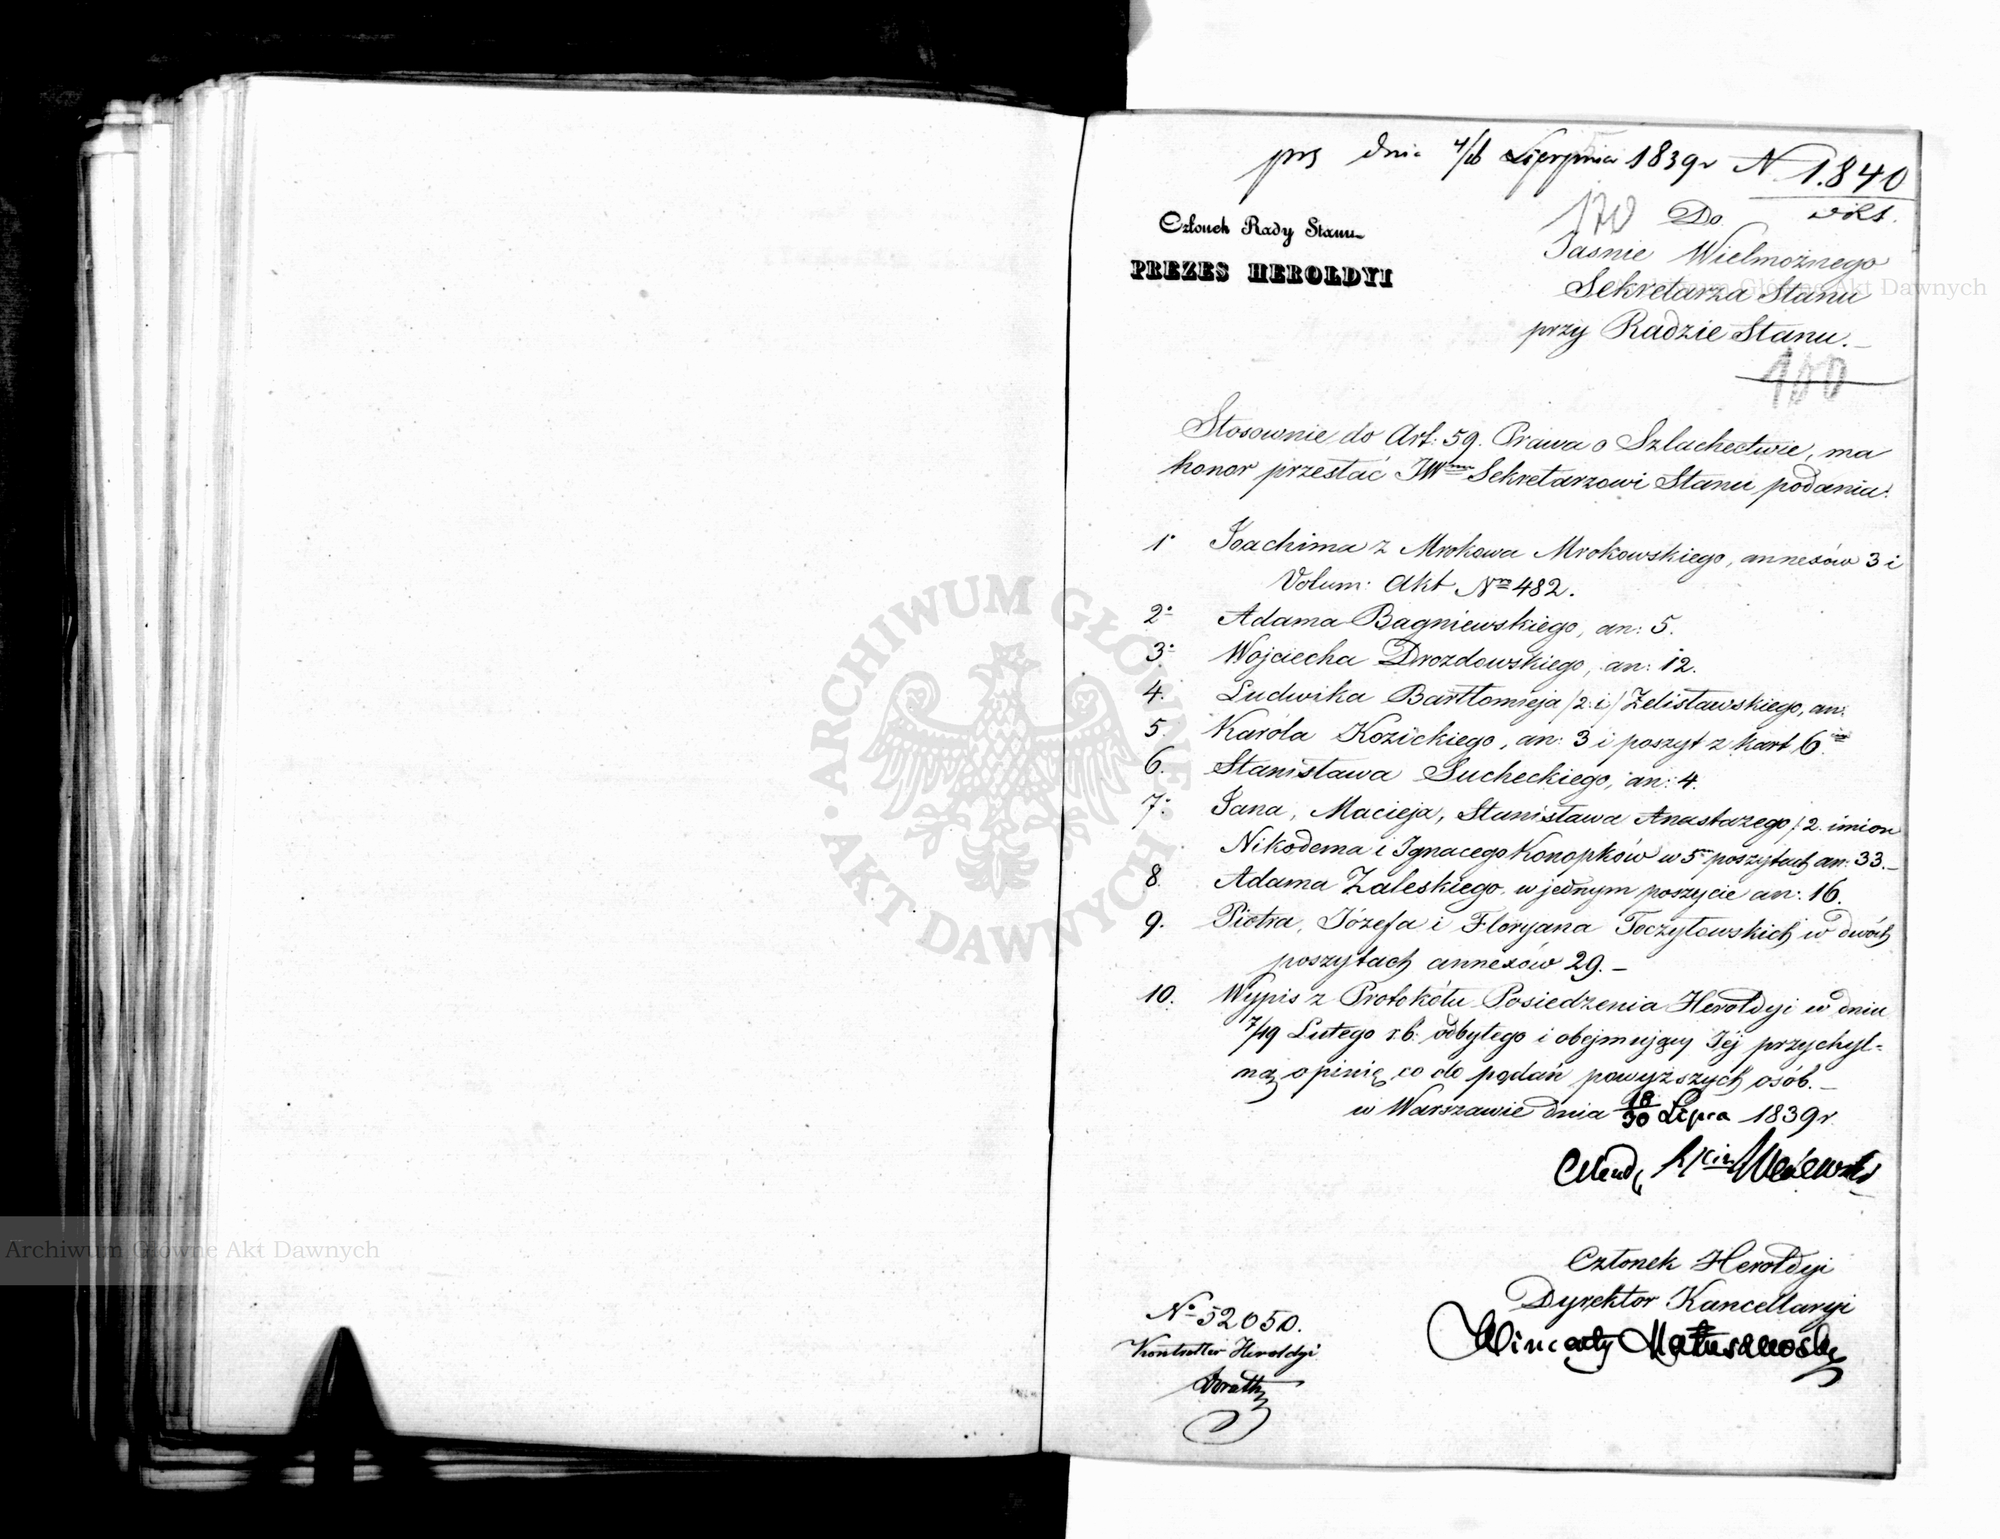 prs dnia 4/16 Sierpnia 1839r N 1.840
Członek Rady Stanu
PREZES HEROLDYI
170 Do
Jaśnie Wielmożnego
Sekretarza Stanu
przy Radzie Stanu.
100
Stosownie do Art: 59. Prawa o Szlachectwie, ma
honor przesłać JW Sekretarzowi Stanu podania:
1° Joachima z Mrokowa Mrokowskiego, annexów 3 i
Volum: Akt Nro 482.
2° Adama Bagniewskiego, an: 5.
3° Wojciecha Drozdowskiego, an: 12.
4. Ludwika Bartłomieja /2. i/ Zelisławskiego, an:
5. Karola Kozickiego, an: 3 i poszyt z kart 6.
6. Stanisława Sucheckiego, an: 4.
7° Jana, Macieja, Stanisława Anastazego /: 2. imion
Nikodema i Ignacego Konopków w 5 poszytach an: 33.—
8. Adama Zaleskiego, w jednym poszycie an: 16.
9. Piotra, Józefa i Floryana Toczyłowskich w dwóch
poszytach annexów 29.—
10. Wypis z Protokółu Posiedzenia Herołdyi w dniu
7/19 Lutego r.b. odbytego i obejmujący Jéj przychyl=
ną opinię co do podań powyższych osób.—
w Warszawie dnia 18/30 Lipca 1839r.
Członek Herołdyi
Dyrektor Kancellaryi
Wincenty Matuszewski
N° 52050.
Kontroller Heroldyi
ARCHIWUM GŁÓWNE AKT DAWNYCH
Archiwum Główne Akt Dawnych
Archiwum Główne Akt Dawnych